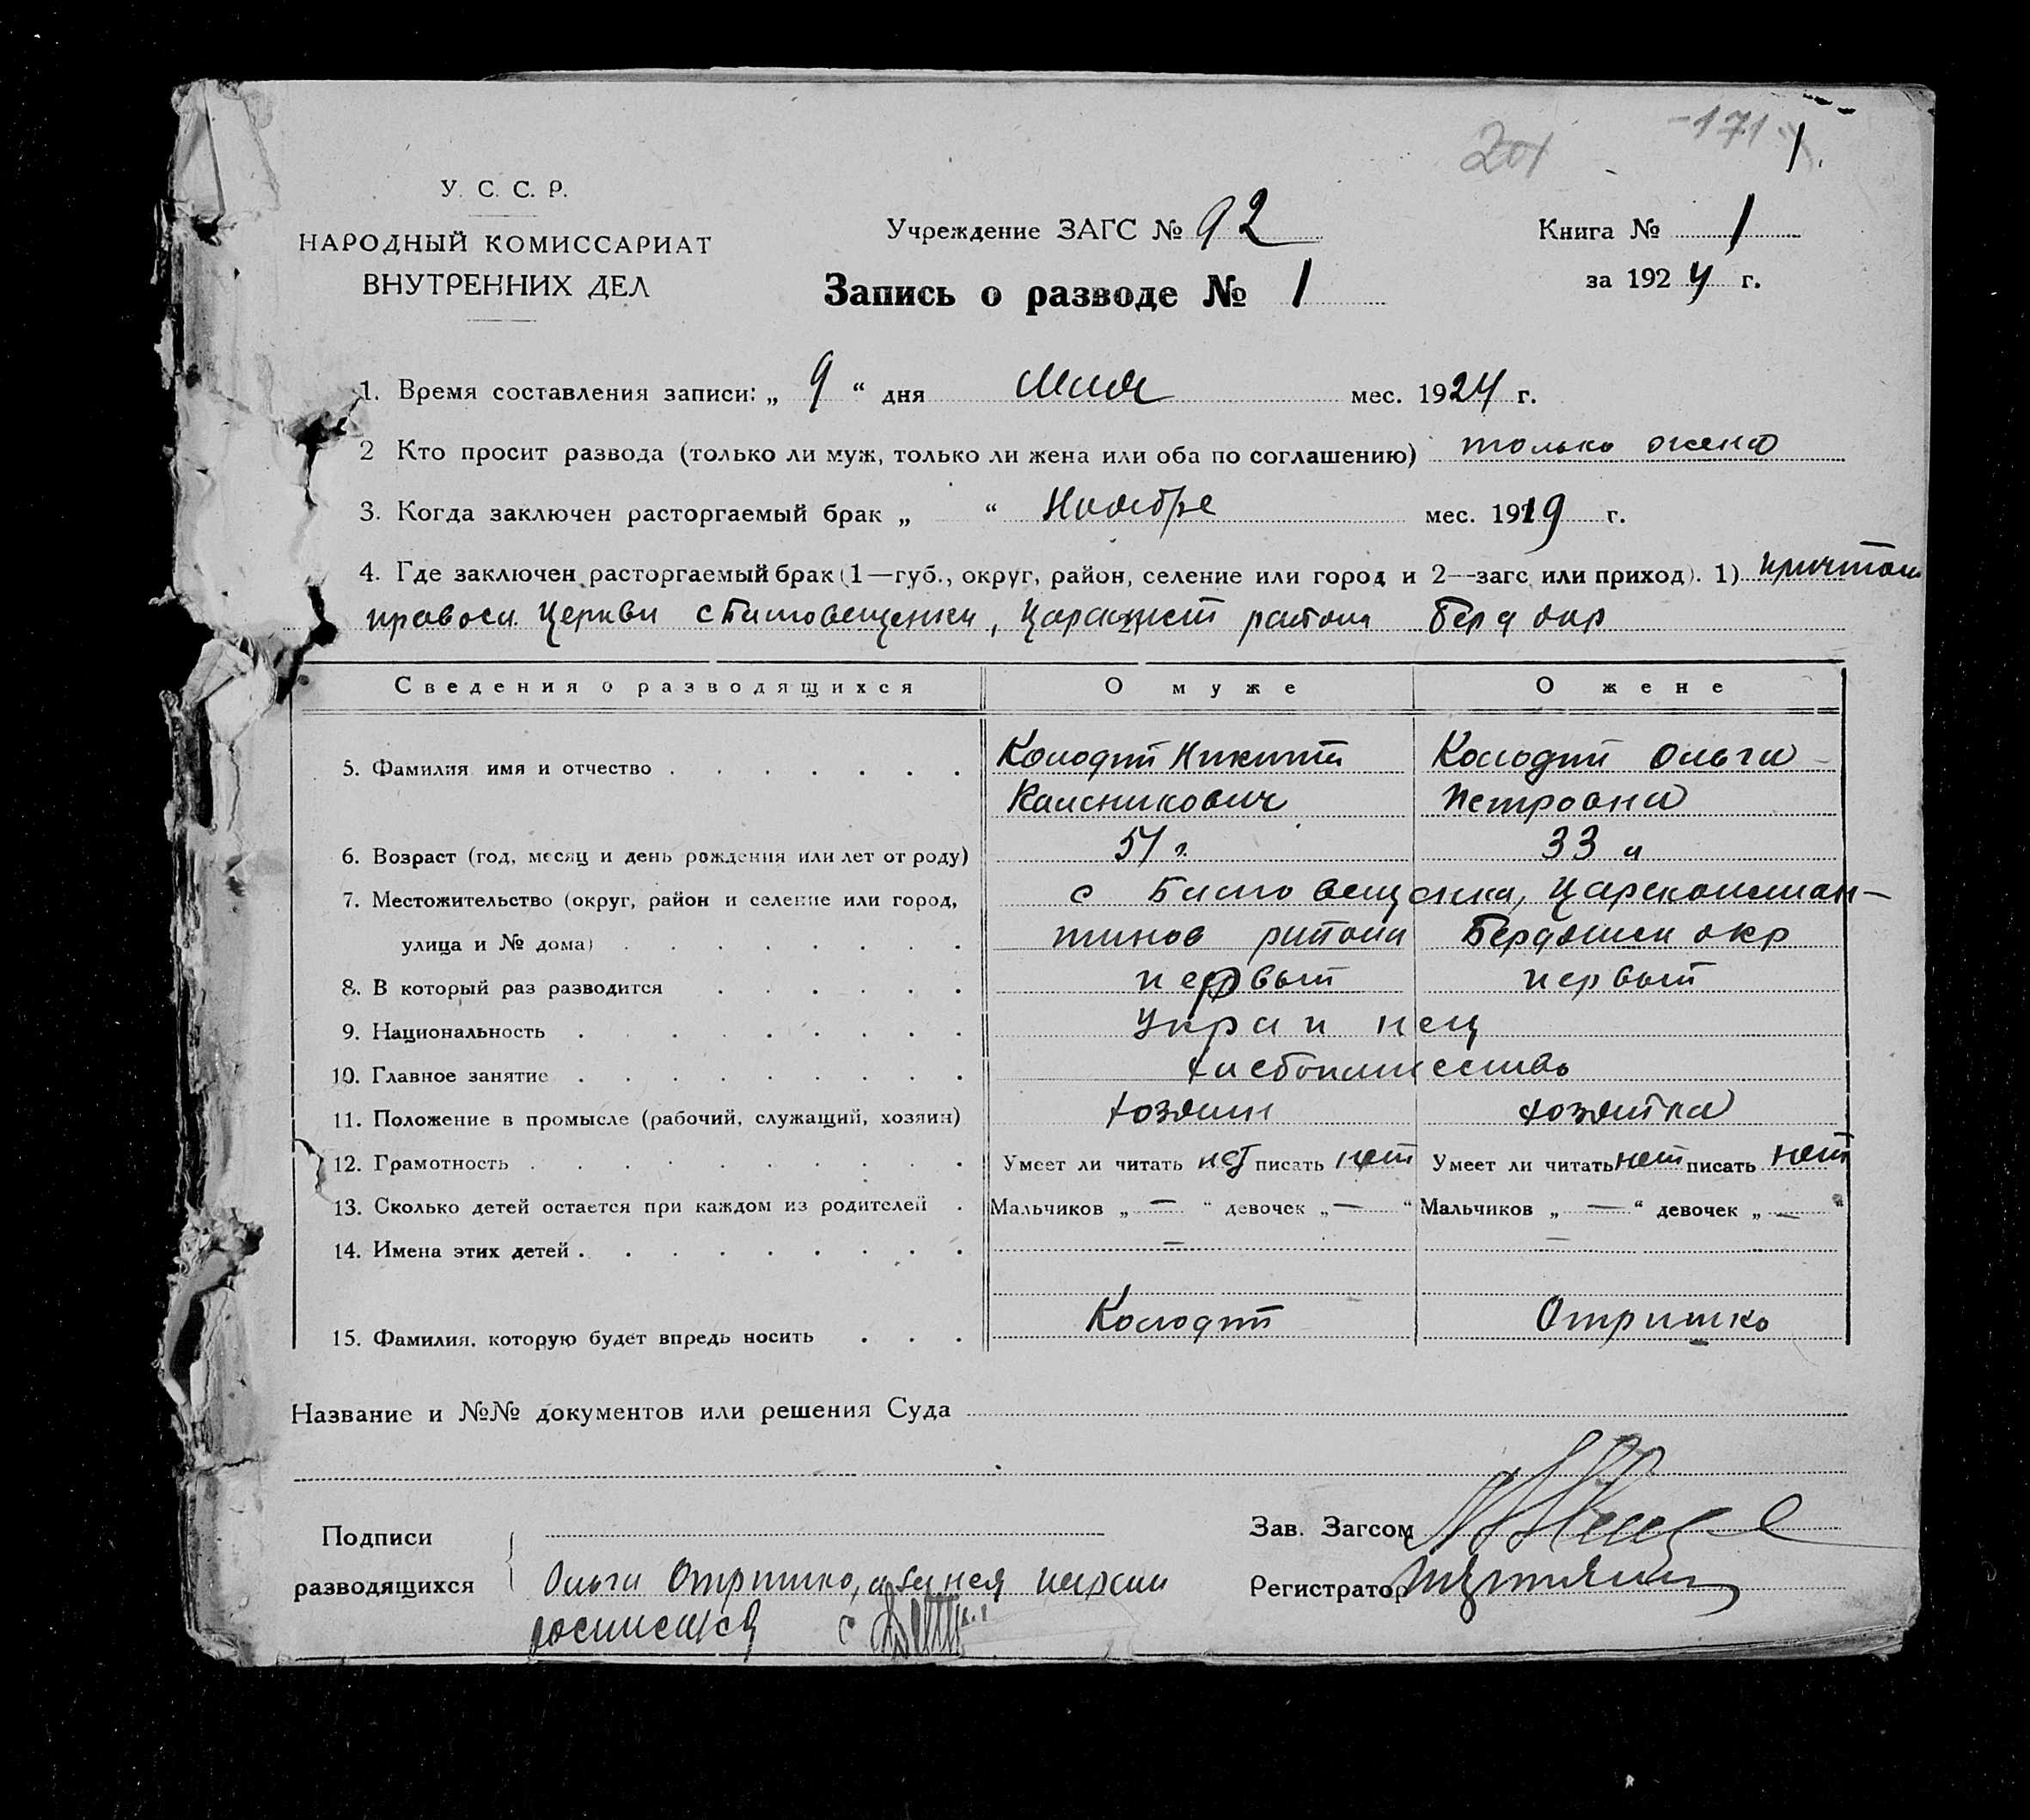 -171
1.
201
У. С. С. Р.
НАРОДНЫЙ КОМИССАРИАТ
ВНУТРЕННИХ ДЕЛ
Учреждение ЗАГС № 92
Запись о разводе № 1
Книга № 1
за 1924 г.
1. Время составления записи: „ 9 “ дня Мая мес. 1924 г.
2 Кто просит развода (только ли муж, только ли жена или оба по соглашению) только жена
3. Когда заключен расторгаемый брак „ “ Ноября мес. 1919 г.
4. Где заключен расторгаемый брак (1—губ., округ, район, селение или город и 2—загс или приход). 1) причтом
правосл. Церкви с Благовещенки, района Берд окр
Сведения о разводящихся О муже О жене
5. Фамилия имя и отчество Колодий Никита Колодий Ольга
Каленикович Петровна
6. Возраст (год, месяц и день рождения или лет от роду) 51 г. 33 л
7. Местожительство (округ, район и селение или город, с Благовещенка, Цареконстан-
улица и № дома) тинов района Бердянск окр
8. В который раз разводится первый первый
9. Национальность Украинец
10. Главное занятие хлебопашество
11. Положение в промысле (рабочий, служащий, хозяин) хозяин хозяйка
12. Грамотность Умеет ли читать нет писать нет Умеет ли читать нет писать нет
13. Сколько детей остается при каждом из родителей Мальчиков „ — “ девочек „ — “ Мальчиков „ — “ девочек „ — “
14. Имена этих детей — —
15. Фамилия, которую будет впредь носить Колодий Отришко
Название и №№ документов или решения Суда
Подписи
разводящихся
Ольга Отришко, а за нея
росписался
Зав. Загсом
Регистратор